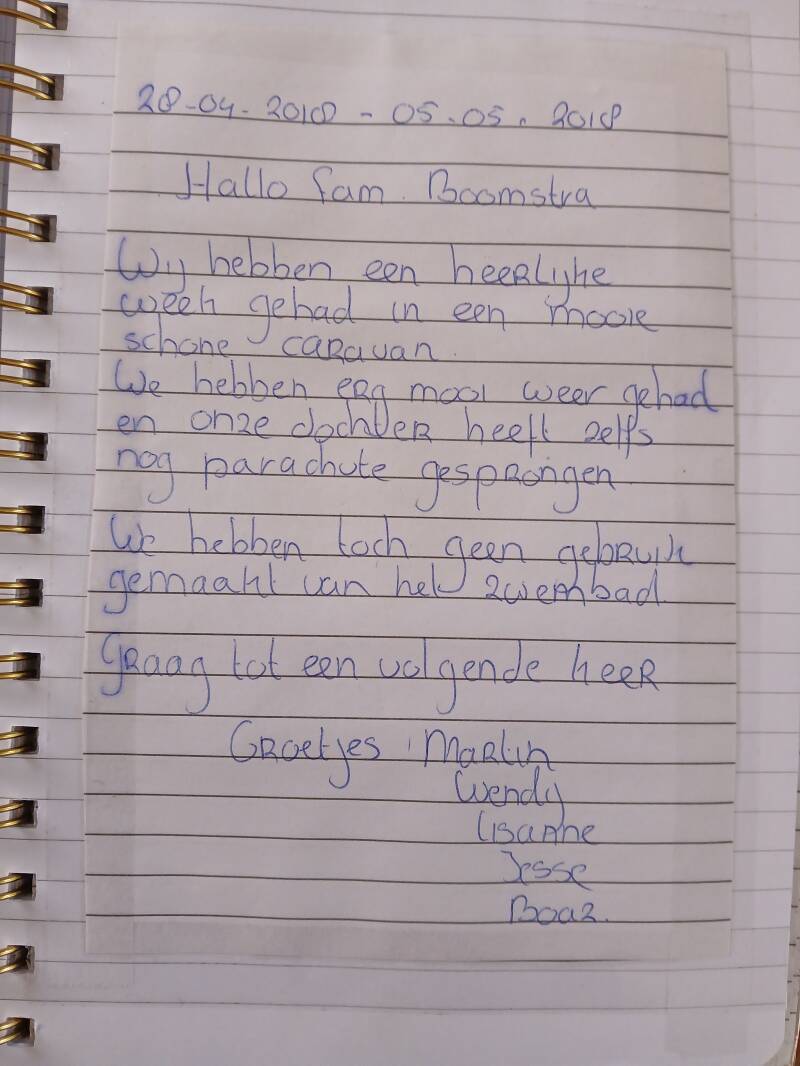 28-04-2018 - 05.05.2018
Hallo fam. Boomstra
Wij hebben een heerlijke
week gehad in een mooie
schone caravan.
We hebben erg mooi weer gehad
en onze dochter heeft zelfs
nog parachute gesprongen
We hebben toch geen gebruik
gemaakt van het zwembad
Graag tot een volgende keer
Groetjes Martin
Wendy
Lisanne
Jesse
Boaz.